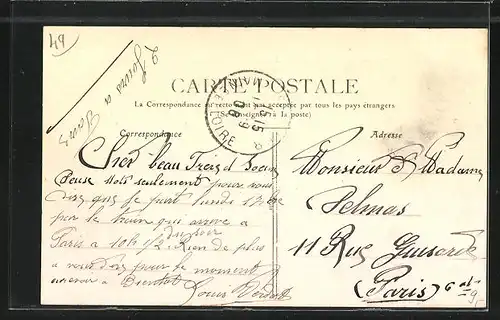 49
2 Jours a
Tours
CARTE POSTALE
La Correspondance au recto n'est pas acceptée par tous les pays étrangers
(Se renseigner à la poste)
Correspondance
Adresse
Cher beau Frère et Soeur
Deux mots seulement pour vous
dire que je part lundi
par le train qui arrive a
du soir
Paris a 10h 1/2 Rien de plus
a vous dire pour le moment
a Bientot
Louis
Monsieur & Madame
Delmas
11 Rue Guisarde
(Paris) 6
LOIRE